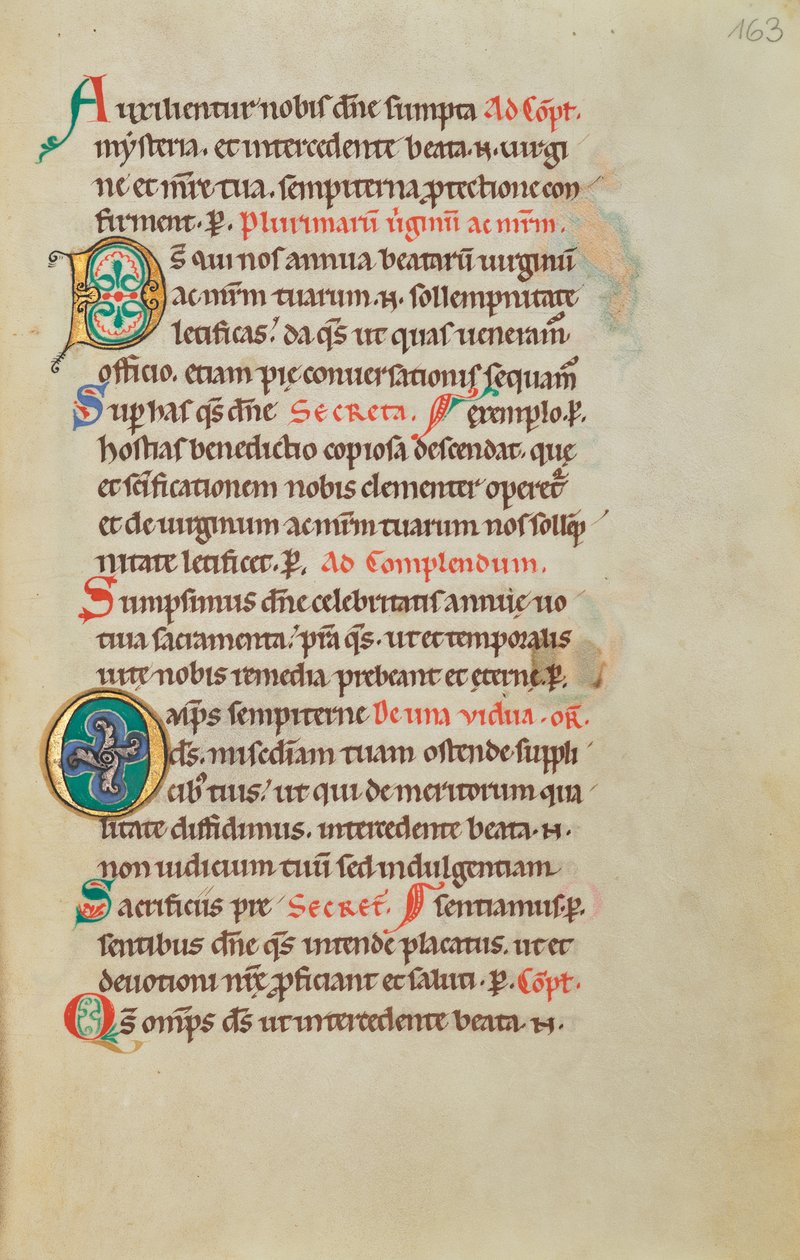 163
Auxilientur nobis dn̄e sumpta Ad Cōpt.
mysteria. et intercedente beata .N. uirgi
ne et mr̄e tua. sempiterna ꝓtectione con
firment. P̱. Plurimarū u̓ginū ac mr̄m.
Ds̄ qui nos annua beatarū uirginū
ac mr̄m tuarum .N. sollempnitate
letificas? da qs̄ ut quas ueneram᷒
officio. etiam pię conuersationis sequam᷒
Suꝑ has qs̄ dn̄e Secreta. exemplo. P̱.
hostias benedictio copiosa descendat. quę
et sc̄ificationem nobis clementer operet᷑
et de uirginum ac mr̄m tuarum nos sollēp
nitate letificet. P̱. Ad Complendum.
Sumpsimus dn̄e celebritatis annuę uo
tiua sacramenta? pr̄a qs̄. ut et temporalis
uitę nobis remedia prebeant et ęternę. P̱.
Omp̄s sempiterne De una vidua. oR̄.
ds̄. misedīam tuam ostende suppli
cib᷒ tuis? ut qui de meritorum qua
litate diffidimus. intercedente beata .N.
non iudicium tuū sed indulgentiam
Sacrificiis pre Secret̄. sentiamus. P̱.
sentibus dn̄e qs̄ intende placatus. ut et
deuotioni nr̄ę ꝓficiant et saluti. P̱. Cōpt.
Qs̄ omp̄s ds̄ ut intercedente beata .N.